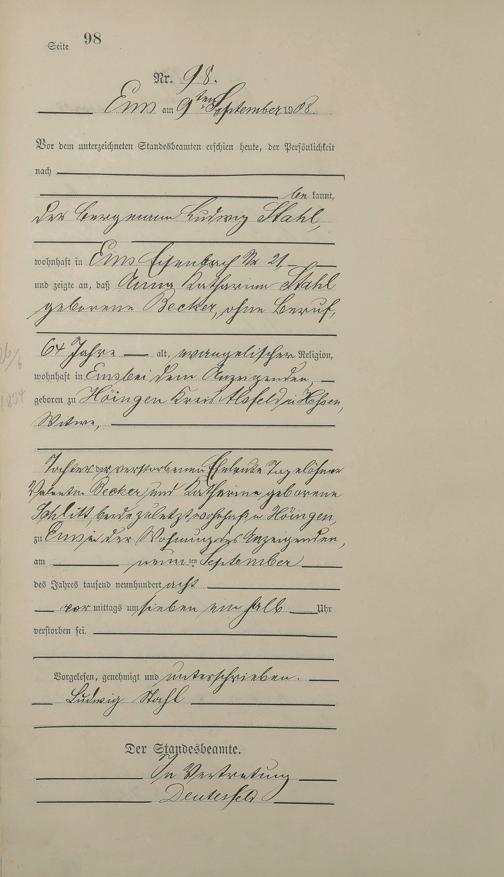 Seite 98
Nr. 98.
Ems am 9ten September 1908.
Vor dem unterzeichneten Standesbeamten erschien heute, der Persönlichkeit
nach
be kannt,
der Bergmann Ludwig Stahl,
wohnhaft in Ems Eisenbach Nr 21
und zeigte an, daß Anna Katharina Stahl
geborene Becker, ohne Beruf,
64 Jahre alt, evangelischer Religion,
wohnhaft in Ems bei dem Anzeigenden,
geboren zu Höingen Kreis Alsfeld in Hessen,
Witwe,
Tochter der verstorbenen Eheleute Tagelöhner
Valentin Becker und Katharina geborene
Schlitt, beide zuletzt wohnhaft in Höingen,
zu Ems in der Wohnung des Anzeigenden,
am neunten September
des Jahres tausend neunhundert acht
vor mittags um sieben ein halb Uhr
verstorben sei.
Vorgelesen, genehmigt und unterschrieben.
Ludwig Stahl
Der Standesbeamte.
In Vertretung